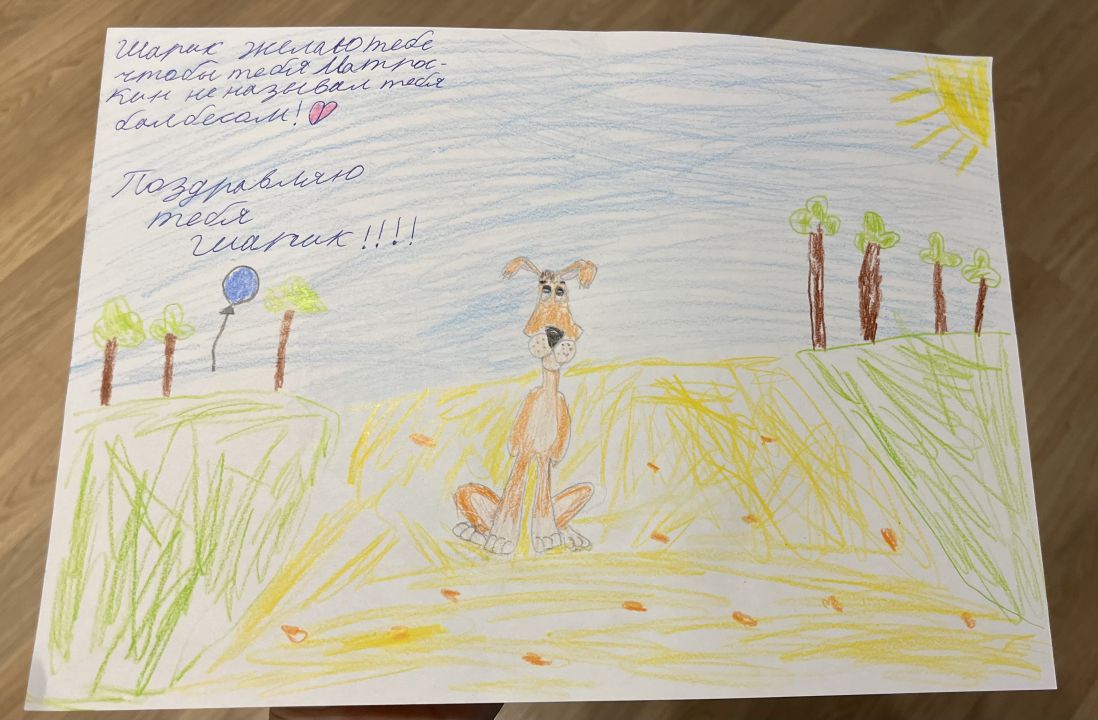 Шарик желаю тебе
чтобы тебя Матрос-
кин не называл тебя
балбесом!
Поздравляю
тебя
Шарик!!!!